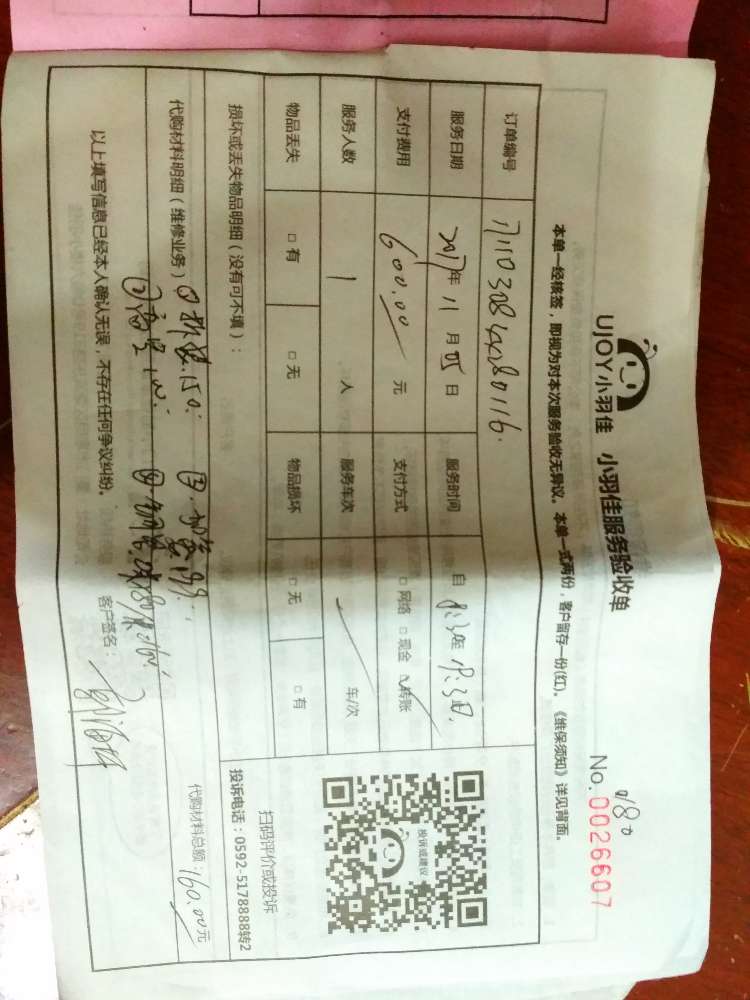 UJOY小羽佳 小羽佳服务验收单
0180
No.0026607
本单一经核签，即视为对本次服务验收无异议。本单一式两份，客户留存一份(红)。《维保须知》详见背面。
订单编号
服务日期 2017年 11 月 05 日 服务时间 自
支付费用 600.00 元 支付方式 □网络 □现金 □转账
服务人数 1 人 服务车次 车/次
物品丢失 □有 □无 物品损坏 □无 □有
损坏或丢失物品明细（没有可不填）：
代购材料明细（维修业务） ① 拆装.150. ③
②
代购材料总额：160.00元
以上填写信息已经本人确认无误，不存在任何争议纠纷。 客户签名：
投诉或建议
扫码评价或投诉
投诉电话：0592-5178888转2